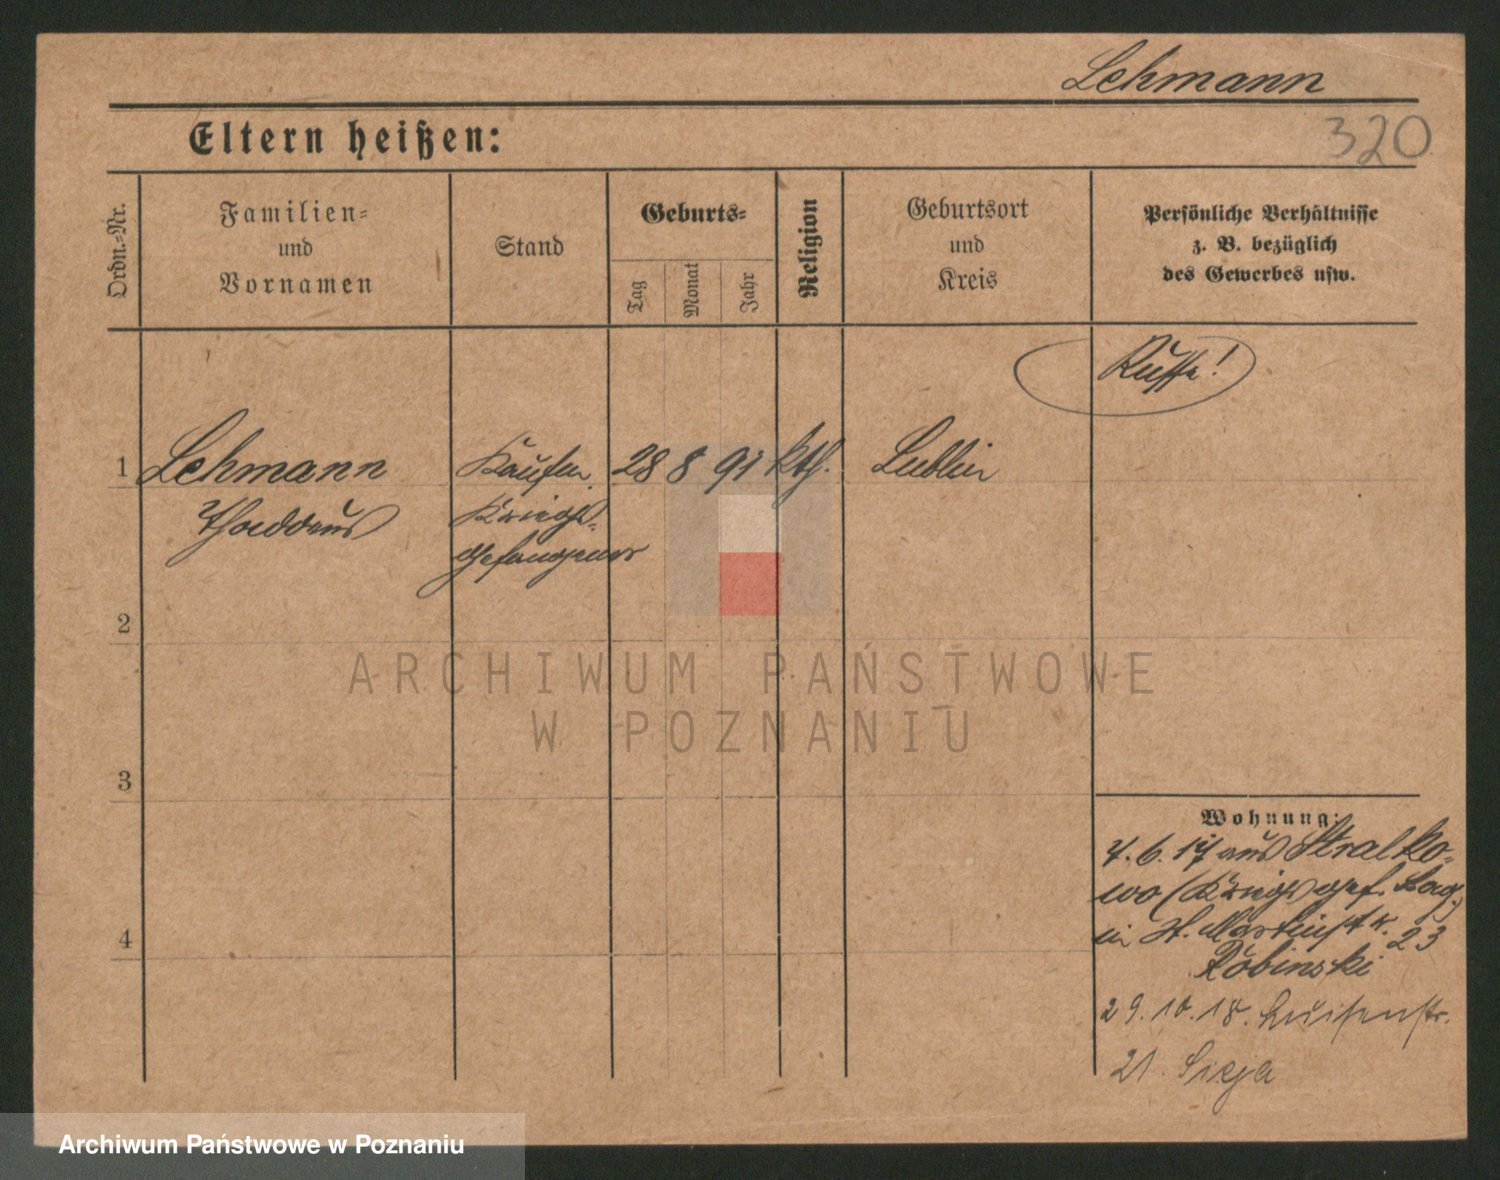 Lehmann
320
Eltern heißen:
Ordn.-Nr.
Familien-
und
Vornamen
Stand
Geburts-
Tag
Monat
Jahr
Religion
Geburtsort
und
Kreis
Persönliche Verhältnisse
z. B. bezüglich
des Gewerbes usw.
Russe!
1 Lehmann 28 8 91 kth. Lublin
Thaddeus Kriegs-
gefangener
2
3
4
Wohnung:
7. 6. 17 aus Stralko-
wo (Kriegsgef. Lag.)
in St. Martinstr. 23
29. 10. 18. Luisenstr.
21.
ARCHIWUM PAŃSTWOWE
W POZNANIU
Archiwum Państwowe w Poznaniu